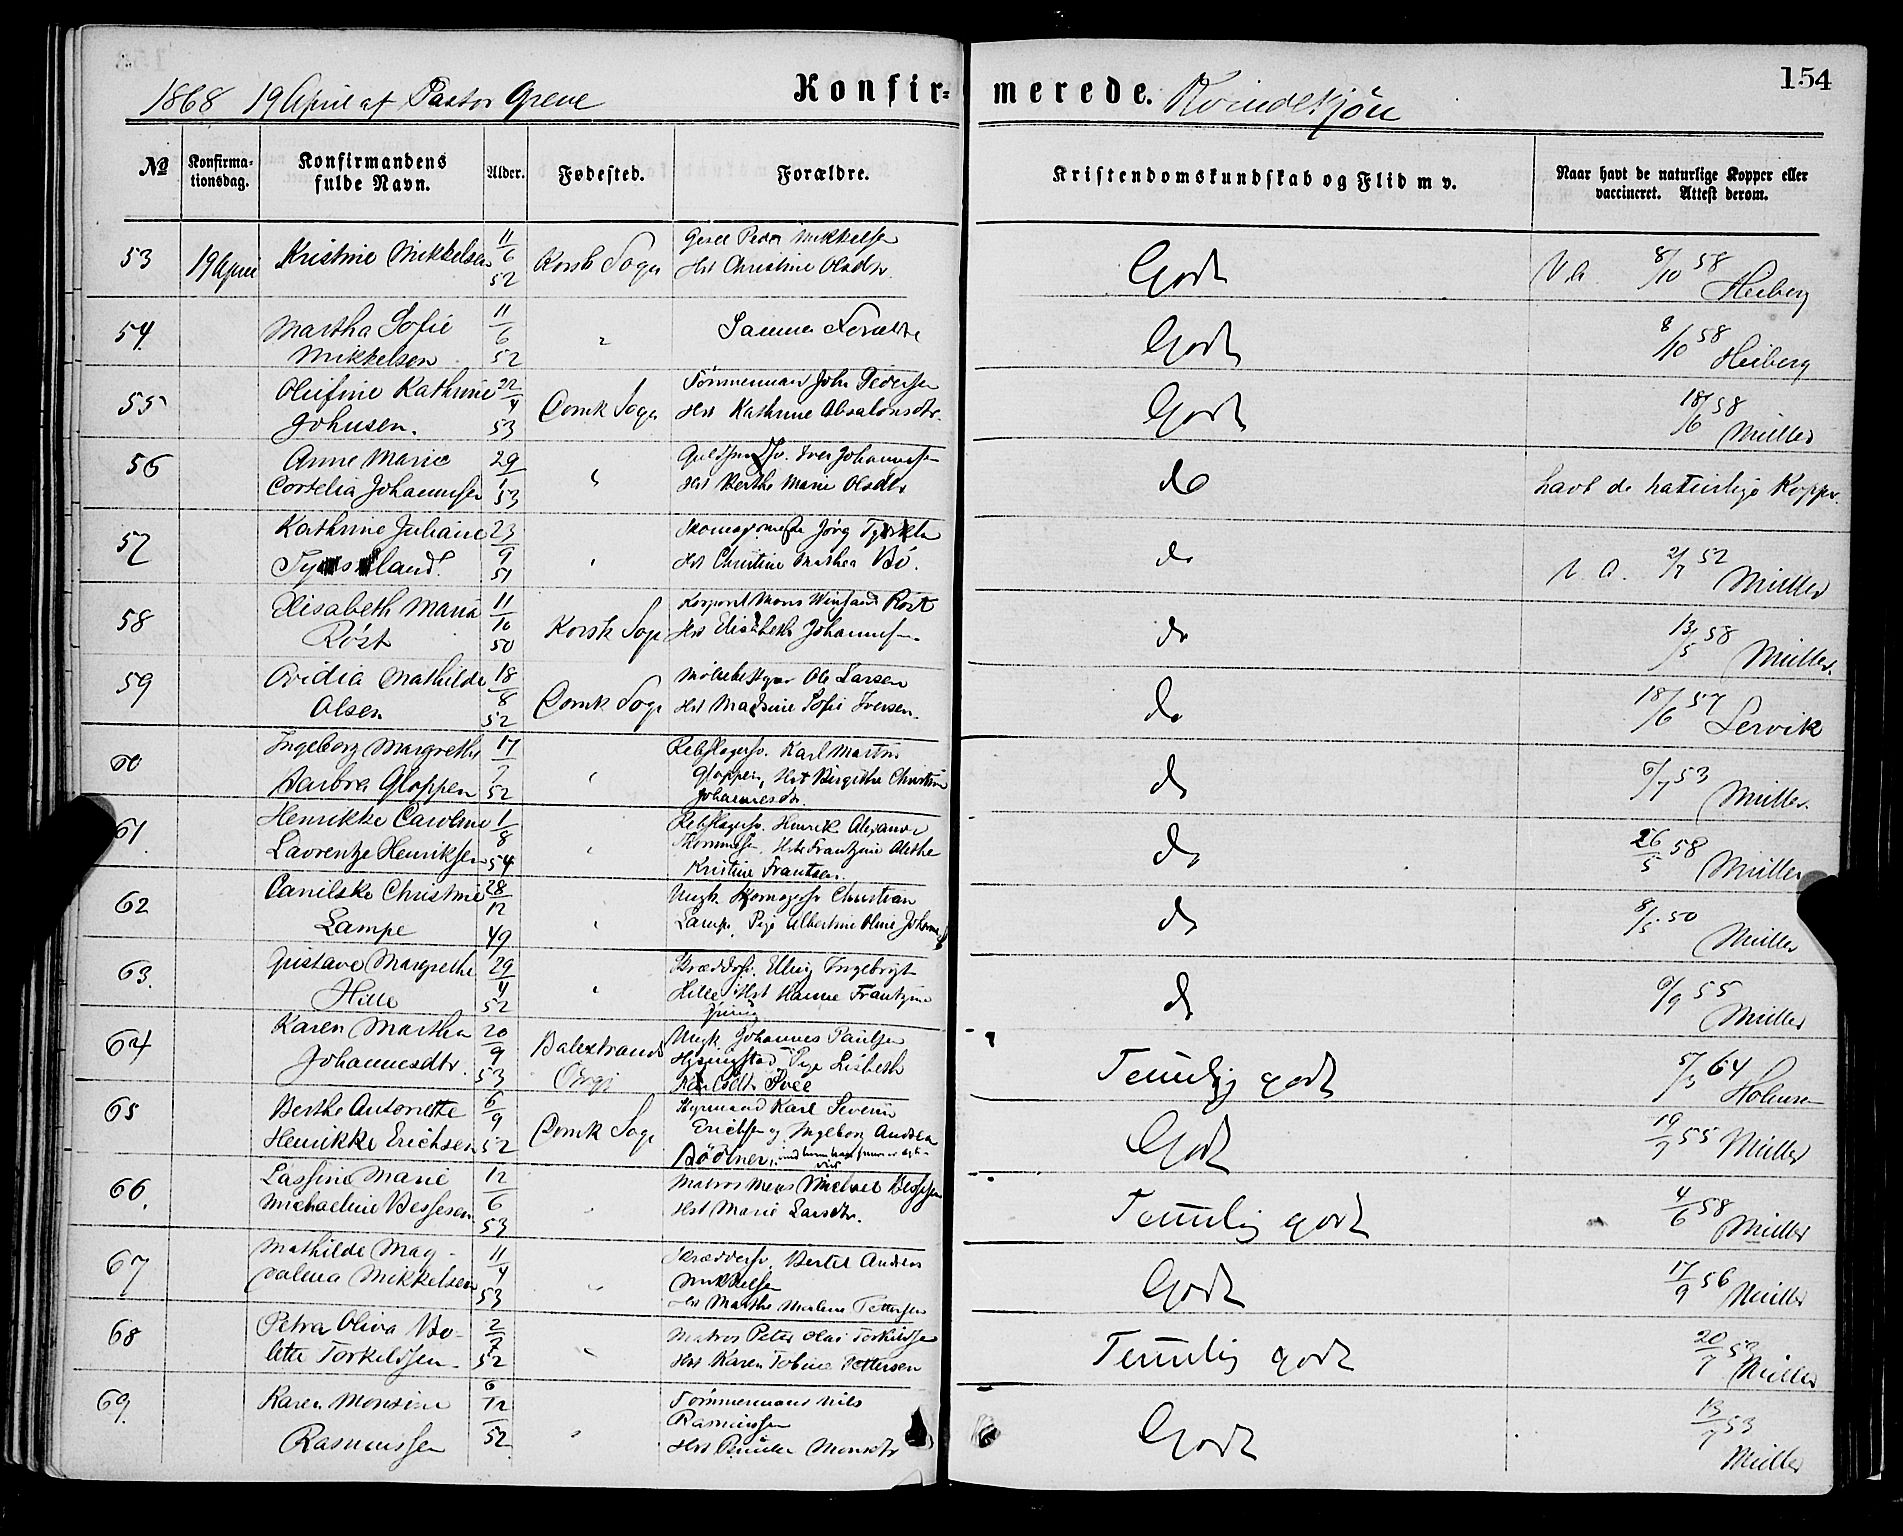 154
1868 19 April af Pastor Greve Konfir= merede. Kvindekjön
No Konfirma- tionsdag. Konfirmandens fulde Navn. Alder. Fødested. Forældre. Kristendomskundskab og Flid m v. Naar havt de naturlige Kopper eller vaccineret. Attest derom.
53 19 April Kristine Mikkelsen 11/6 52 Korsk Sogn Peder Mikkelsen
Hst Christine Olsdtr. Godt V. A. 8/10 58 Heiberg
54. Martha Sofie 11/6 52 " Samme Forældre Godt 8/10 58 Heiberg
Mikkelsen
55 Olufine Kathrine 22/4 53 Domk Sogn Tömmermand John Pedersen Godt 18/6 58 Müller
Johnsen. Hst Kathrine Absalonsdtr.
56 Anne Marie 29/1 53 " Iver Johannessen do havt de naturlige Kopper.
Cornelia Johannessen Hst Berthe Marie Olsdtr
57 Kathrine Juliane 23/9 51 " Jörg do V. A. 2/7 52 Müller
Hst Christine Mathea Bö.
58 Elisabeth Maria 11/10 50 Korsk Sogn Mons Röst do 13/5 58 Müller.
Röst Hst Elisabeth Johannesen
59 Ovidia Mathilde 18/8 52 Domk Sogn Ole Larsen do 18/6 57 Lervik
Olsen Hst Madsine Sofie Iversen.
60 Ingeborg Margrethe 52 " Rebslagersv. Karl Martin do 6/7 53 Müller.
Barbra Gloppen Gloppen, Hst Birgithe Christine
Johannesdtr
61. Henrikke Caroline 1/8 54 " Rebslagersv. Henrik Alexander do 26/5 58 Müller
Lavrentze Henriksen Hst Frantzine Alethe
Kristine Frantsen.
62 Canilske Christine 28/12 49 " Ungk. Skomagersv Christian do 8/5 50 Müller
Lampe Lampe, Pige Albertine Oline
63. Gustava Margrethe 29/4 52 " Skræddersv. Elling Ingebrigt do 6/9 55 Müller
Hille Hille Hst Hanne Frantzine
64 Karen Martha 20/9 53 Balestrands Ungk Johannes Paulsen Temmelig godt 5/3 64
Johannesdtr. Pige Lisbeth
65 Berthe Antonette 6/9 52 Domk Sogn Styrmand Karl Severin Godt 19/7 55 Müller
Henrikke Erichsen Erichsen og Ingeborg Andrea
Bödtner,
66. Lassine Marie 12/6 53 " Matros Mons Michael Bessesen Temmelig godt 4/6 58 Müller
Michaeline Bessesen Hst Marie Larsdtr.
67 Mathilde Mag- 11/4 53 " Skræddersv. Bertel Andreas Godt 17/9 56 Müller
dalena Mikkelsen Mikkelsen
Hst Marthe Malene Pettersen
68 Petra Oliva Bo- 2/7 52 " Matros Peter Olai Torkildsen Temmelig godt 20/7 53 Müller
lette Torkildsen. Hst Karen Tobine Pettersen
69. Karen Monsine 6/12 52 " Tömmermand Nils Godt 13/7 53 Müller
Rasmussen Rasmussen
Hst Monsdtr